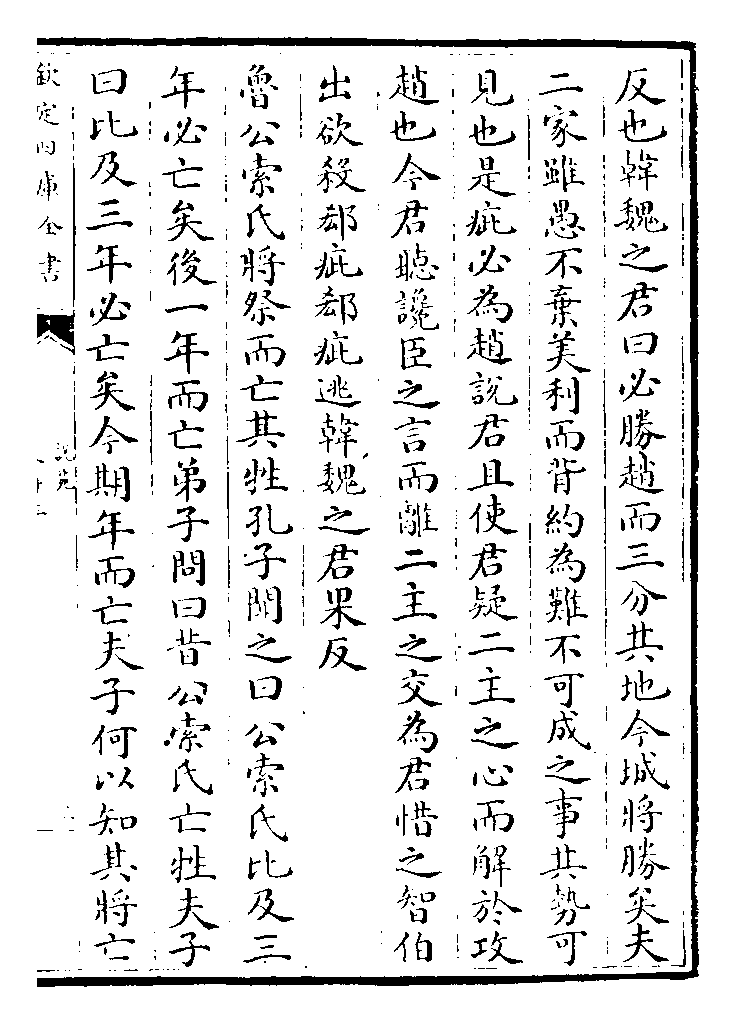 反也韓魏之君曰必勝趙而三分其地今城將勝矣夫
二家雖愚不棄美利而背約為難不可成之事其勢可
見也是疵必為趙說君且使君疑二主之心而解於攻
趙也今君聽讒臣之言而離二主之交為君惜之智伯
出欲殺郄疵郄疵逃韓魏之君果反
魯公索氏將祭而亡其牲孔子聞之曰公索氏比及三
年必亡矣後一年而亡弟子問曰昔公索氏亡牲夫子
曰比及三年必亡矣今期年而亡夫子何以知其將亡
欽定四庫全書
說苑